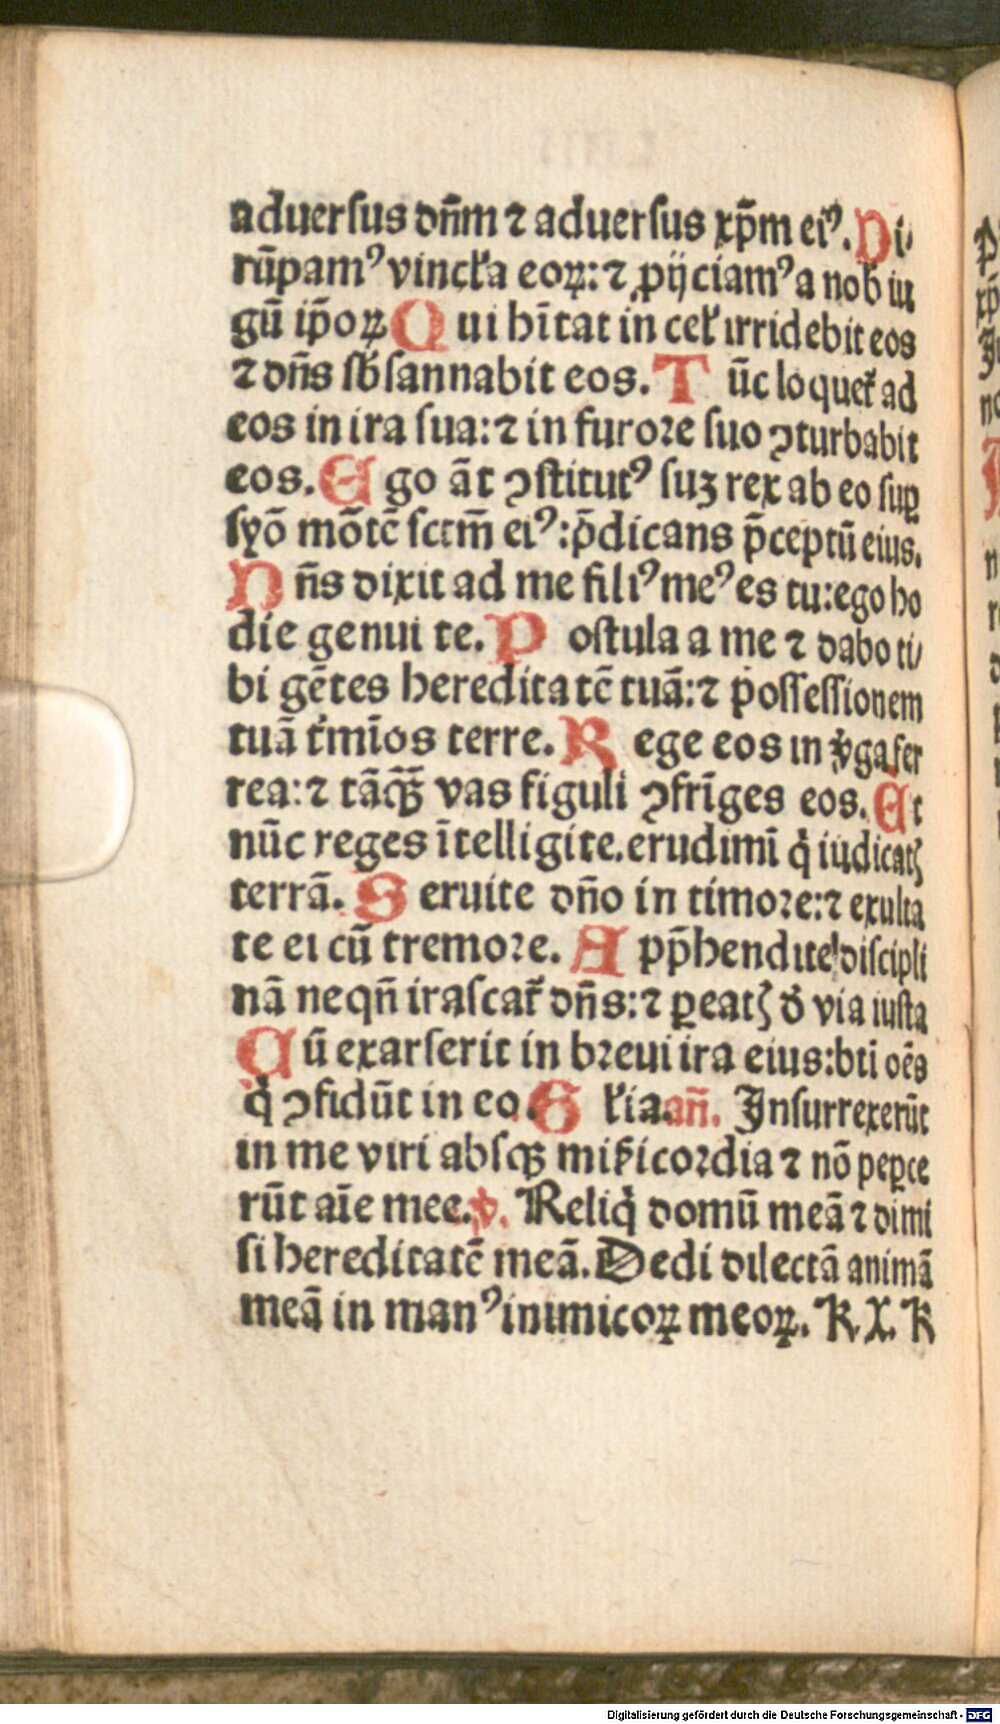 aduersus dn̄m ⁊ aduersus xp̄m eiꝰ. Di
rūpamꝰ vincl̓a eoꝝ: ⁊ ꝓijciamꝰ a nob iu
gū ip̄oꝝ Qui hītat in cel̓ irridebit eos
⁊ dn̄s sb̄sannabit eos. Tūc loquet̓ ad
eos in ira sua: ⁊ in furore suo ꝯturbabit
eos. Ego āt ꝯstitutꝰ suꝫ rex ab eo suꝑ
syō mōtē sctm̄ eiꝰ: p̄dicans p̄ceptū eius.
Dn̄s dixit ad me filiꝰ meꝰ es tu: ego ho
die genui te. Postula a me ⁊ dabo ti
bi gētes hereditatē tuā: ⁊ possessionem
tuā t̓mīos terre. Rege eos in v̓ga fer
rea: ⁊ tāqꝫ̄ vas figuli ꝯfrīges eos. Et
nūc reges ītelligite. erudimī q̇ iudicatꝭ
terrā. Seruite dn̄o in timore: ⁊ exulta
te ei cū tremore. App̄hendite discipli
nā neqn̄ irascat̓ dn̄s: ⁊ ꝑeatꝭ d̓ via iusta
Cū exarserit in breui ira eius: btī oēs
q̇ ꝯfidūt in eo. Gl̓ia. an̄. Insurrexerūt
in me viri absqꝫ mis̓icordia ⁊ nō peꝑce
rūt aīe mee. ꝟ. Reliq̇ domū meā ⁊ dimi
si hereditatē meā. Dedi dilectā animā
meā in manꝰ inimicoꝝ meoꝝ. K. X. K
Digitalisierung gefördert durch die Deutsche Forschungsgemeinschaft - DFG